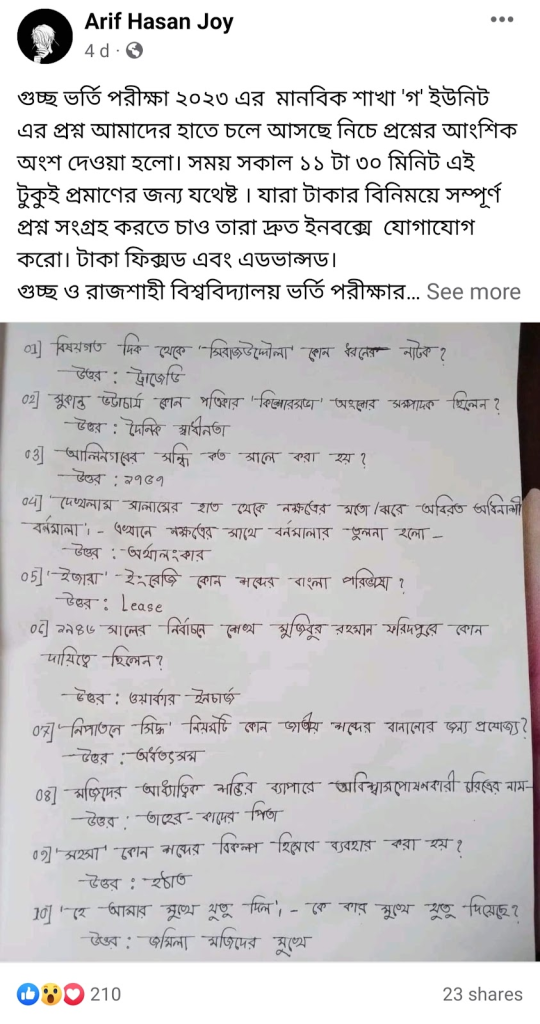 Arif Hasan Joy
4 d
গুচ্ছ ভর্তি পরীক্ষা ২০২৩ এর মানবিক শাখা 'গ' ইউনিট
এর প্রশ্ন আমাদের হাতে চলে আসছে নিচে প্রশ্নের আংশিক
অংশ দেওয়া হলো। সময় সকাল ১১ টা ৩০ মিনিট এই
টুকুই প্রমাণের জন্য যথেষ্ট । যারা টাকার বিনিময়ে সম্পূর্ণ
প্রশ্ন সংগ্রহ করতে চাও তারা দ্রুত ইনবক্সে যোগাযোগ
করো। টাকা ফিক্সড এবং এডভান্সড।
গুচ্ছ ও রাজশাহী বিশ্ববিদ্যালয় ভর্তি পরীক্ষার... See more
01] বিষয়গত দিক থেকে 'সিরাজউদ্দৌলা' কোন ধরনের নাটক ?
উত্তর : ট্রাজেডি
02] সুকান্ত ভট্টাচার্য কোন পত্রিকার 'কিশোরসভা' অংশের সম্পাদক ছিলেন ?
উত্তর : দৈনিক স্বাধীনতা
03] আলিনগরের সন্ধি কত সালে করা হয় ?
উত্তর : ১৭৫৭
04] 'দেখলাম সালামের হাত থেকে নক্ষত্রের মতো / ঝরে অবিরত অবিনাশী
বর্নমালা', - এখানে নক্ষত্রের সাথে বর্নমালার তুলনা হলো -
উত্তর : অর্থালংকার
05] 'ইজারা' ইংরেজি কোন শব্দের বাংলা পরিভাষা ?
উত্তর : Lease
06] ১৯৪৬ সালের নির্বাচনে শেখ মুজিবুর রহমান ফরিদপুরে কোন
দায়িত্বে ছিলেন ?
উত্তর : ওয়ার্কার ইনচার্জ
07] 'নিপাতনে সিদ্ধ' নিয়মটি কোন জাতীয় শব্দের বানানের জন্য প্রযোজ্য ?
উত্তর : অর্ধতৎসম
08] মজিদের আধ্যাত্বিক শক্তির ব্যাপারে অবিশ্বাসপোষনকারী চরিত্রের নাম-
উত্তর : তাহের-কাদের পিতা
09] 'সহসা' কোন শব্দের বিকল্প হিসেবে ব্যবহার করা হয় ?
উত্তর : হঠাত
10] 'হে আমার মুখে থুতু দিল', - কে কার মুখে থুতু দিয়েছে ?
উত্তর : জমিলা মজিদের মুখে
210
23 shares